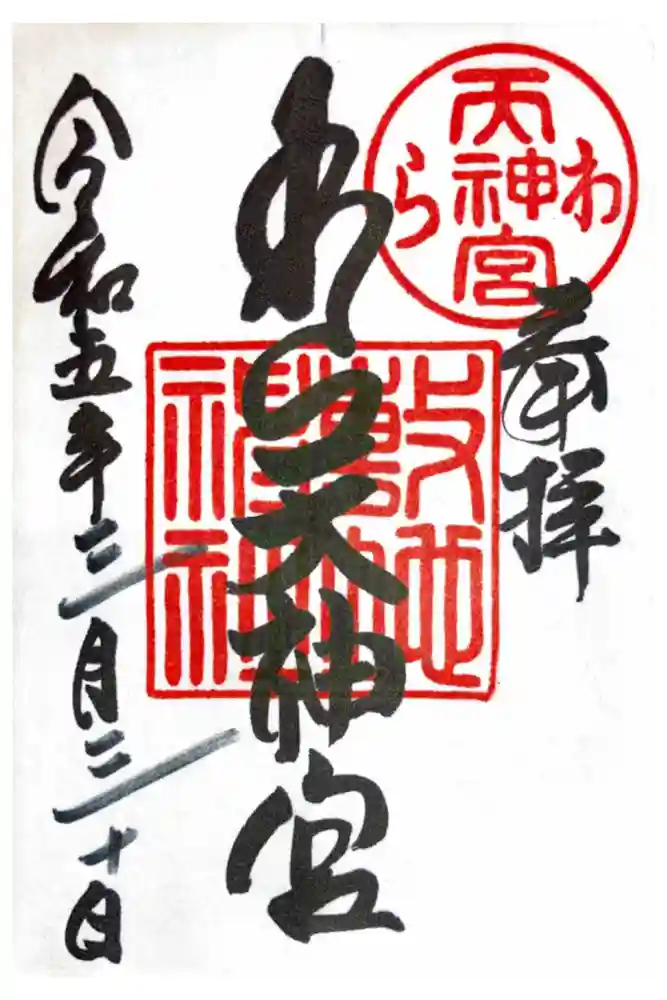 わら天神宮
奉拝
わら天神宮
敷地
神社
令和五年三月三十日